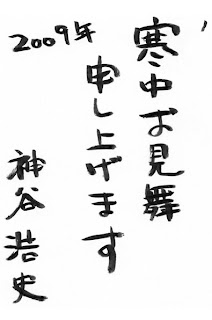 寒中お見舞
申し上げます
2009年
神谷浩史